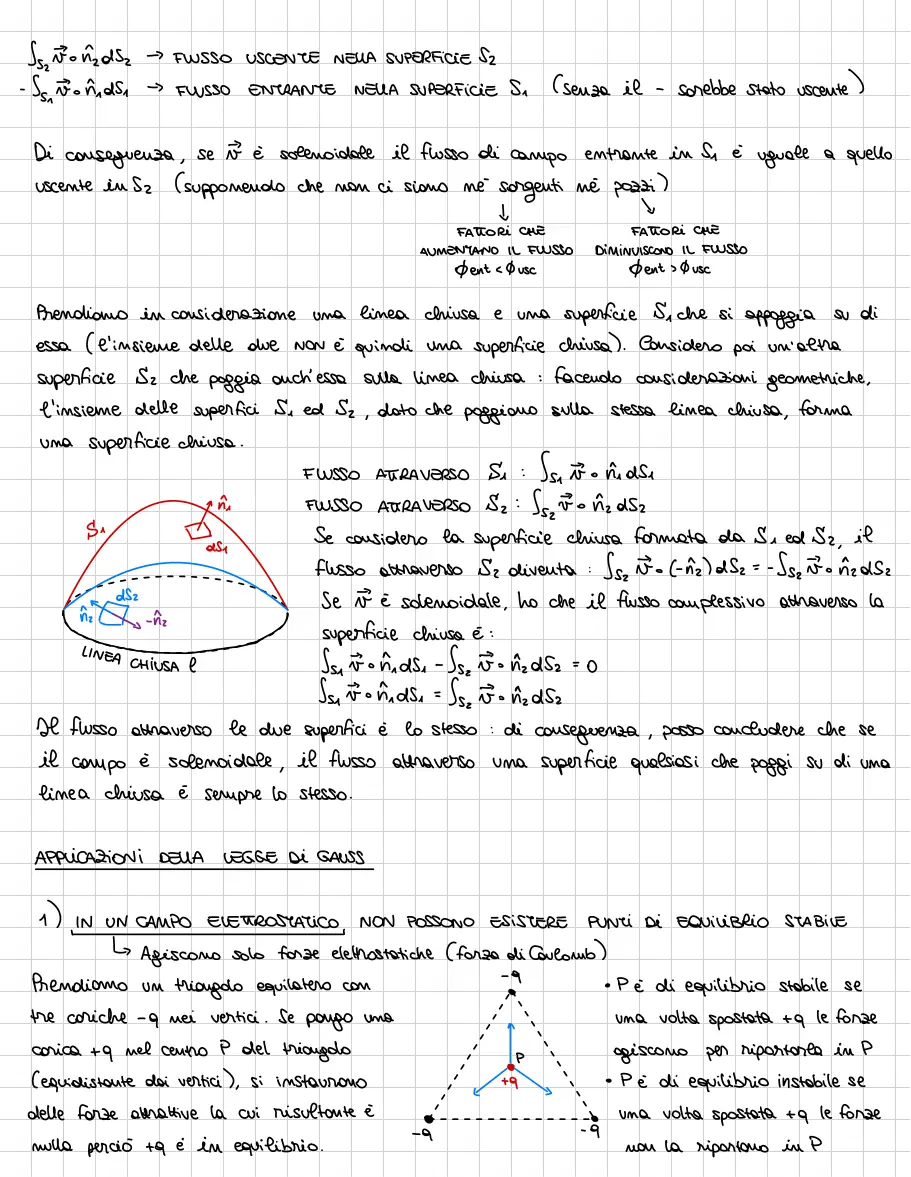 ∫S₂ v⃗ ∘ n̂₂ dS₂ → FLUSSO USCENTE NELLA SUPERFICIE S₂
- ∫S₁ v⃗ ∘ n̂₁ dS₁ → FLUSSO ENTRANTE NELLA SUPERFICIE S₁ (senza il - sarebbe stato uscente)
Di conseguenza, se v⃗ è solenoidale il flusso di campo entrante in S₁ è uguale a quello
uscente in S₂ (supponendo che non ci siano né sorgenti né pozzi)
↓ ↘
FATTORI CHE FATTORI CHE
AUMENTANO IL FLUSSO DIMINUISCONO IL FLUSSO
ϕent < ϕusc ϕent > ϕusc
Prendiamo in considerazione una linea chiusa e una superficie S₁ che si appoggia su di
essa (l'insieme delle due NON è quindi una superficie chiusa). Considero poi un'altra
superficie S₂ che poggia anch'essa sulla linea chiusa : facendo considerazioni geometriche,
l'insieme delle superfici S₁ ed S₂, dato che poggiano sulla stessa linea chiusa, forma
una superficie chiusa.
FLUSSO ATTRAVERSO S₁ : ∫S₁ v⃗ ∘ n̂₁ dS₁
FLUSSO ATTRAVERSO S₂ : ∫S₂ v⃗ ∘ n̂₂ dS₂
Se considero la superficie chiusa formata da S₁ ed S₂, il
flusso attraverso S₂ diventa : ∫S₂ v⃗ ∘ (-n̂₂) dS₂ = -∫S₂ v⃗ ∘ n̂₂ dS₂
Se v⃗ è solenoidale, ho che il flusso complessivo attraverso la
superficie chiusa è :
∫S₁ v⃗ ∘ n̂₁ dS₁ - ∫S₂ v⃗ ∘ n̂₂ dS₂ = 0
∫S₁ v⃗ ∘ n̂₁ dS₁ = ∫S₂ v⃗ ∘ n̂₂ dS₂
S₁
n̂₁
dS₁
dS₂
n̂₂
-n̂₂
LINEA CHIUSA l
Il flusso attraverso le due superfici è lo stesso : di conseguenza, posso concludere che se
il campo è solenoidale, il flusso attraverso una superficie qualsiasi che poggi su di una
linea chiusa è sempre lo stesso.
APPLICAZIONI DELLA LEGGE DI GAUSS
1) IN UN CAMPO ELETTROSTATICO NON POSSONO ESISTERE PUNTI DI EQUILIBRIO STABILE
↳ Agiscono solo forze elettrostatiche (forza di Coulomb)
Prendiamo un triangolo equilatero con
tre cariche -q nei vertici. Se pongo una
carica +q nel centro P del triangolo
(equidistante dai vertici), si instaurano
delle forze attrattive la cui risultante è
nulla perciò +q è in equilibrio.
-q
P
+q
-q
-q
• P è di equilibrio stabile se
una volta spostata +q le forze
agiscono per riportarla in P
• P è di equilibrio instabile se
una volta spostata +q le forze
non la riportano in P